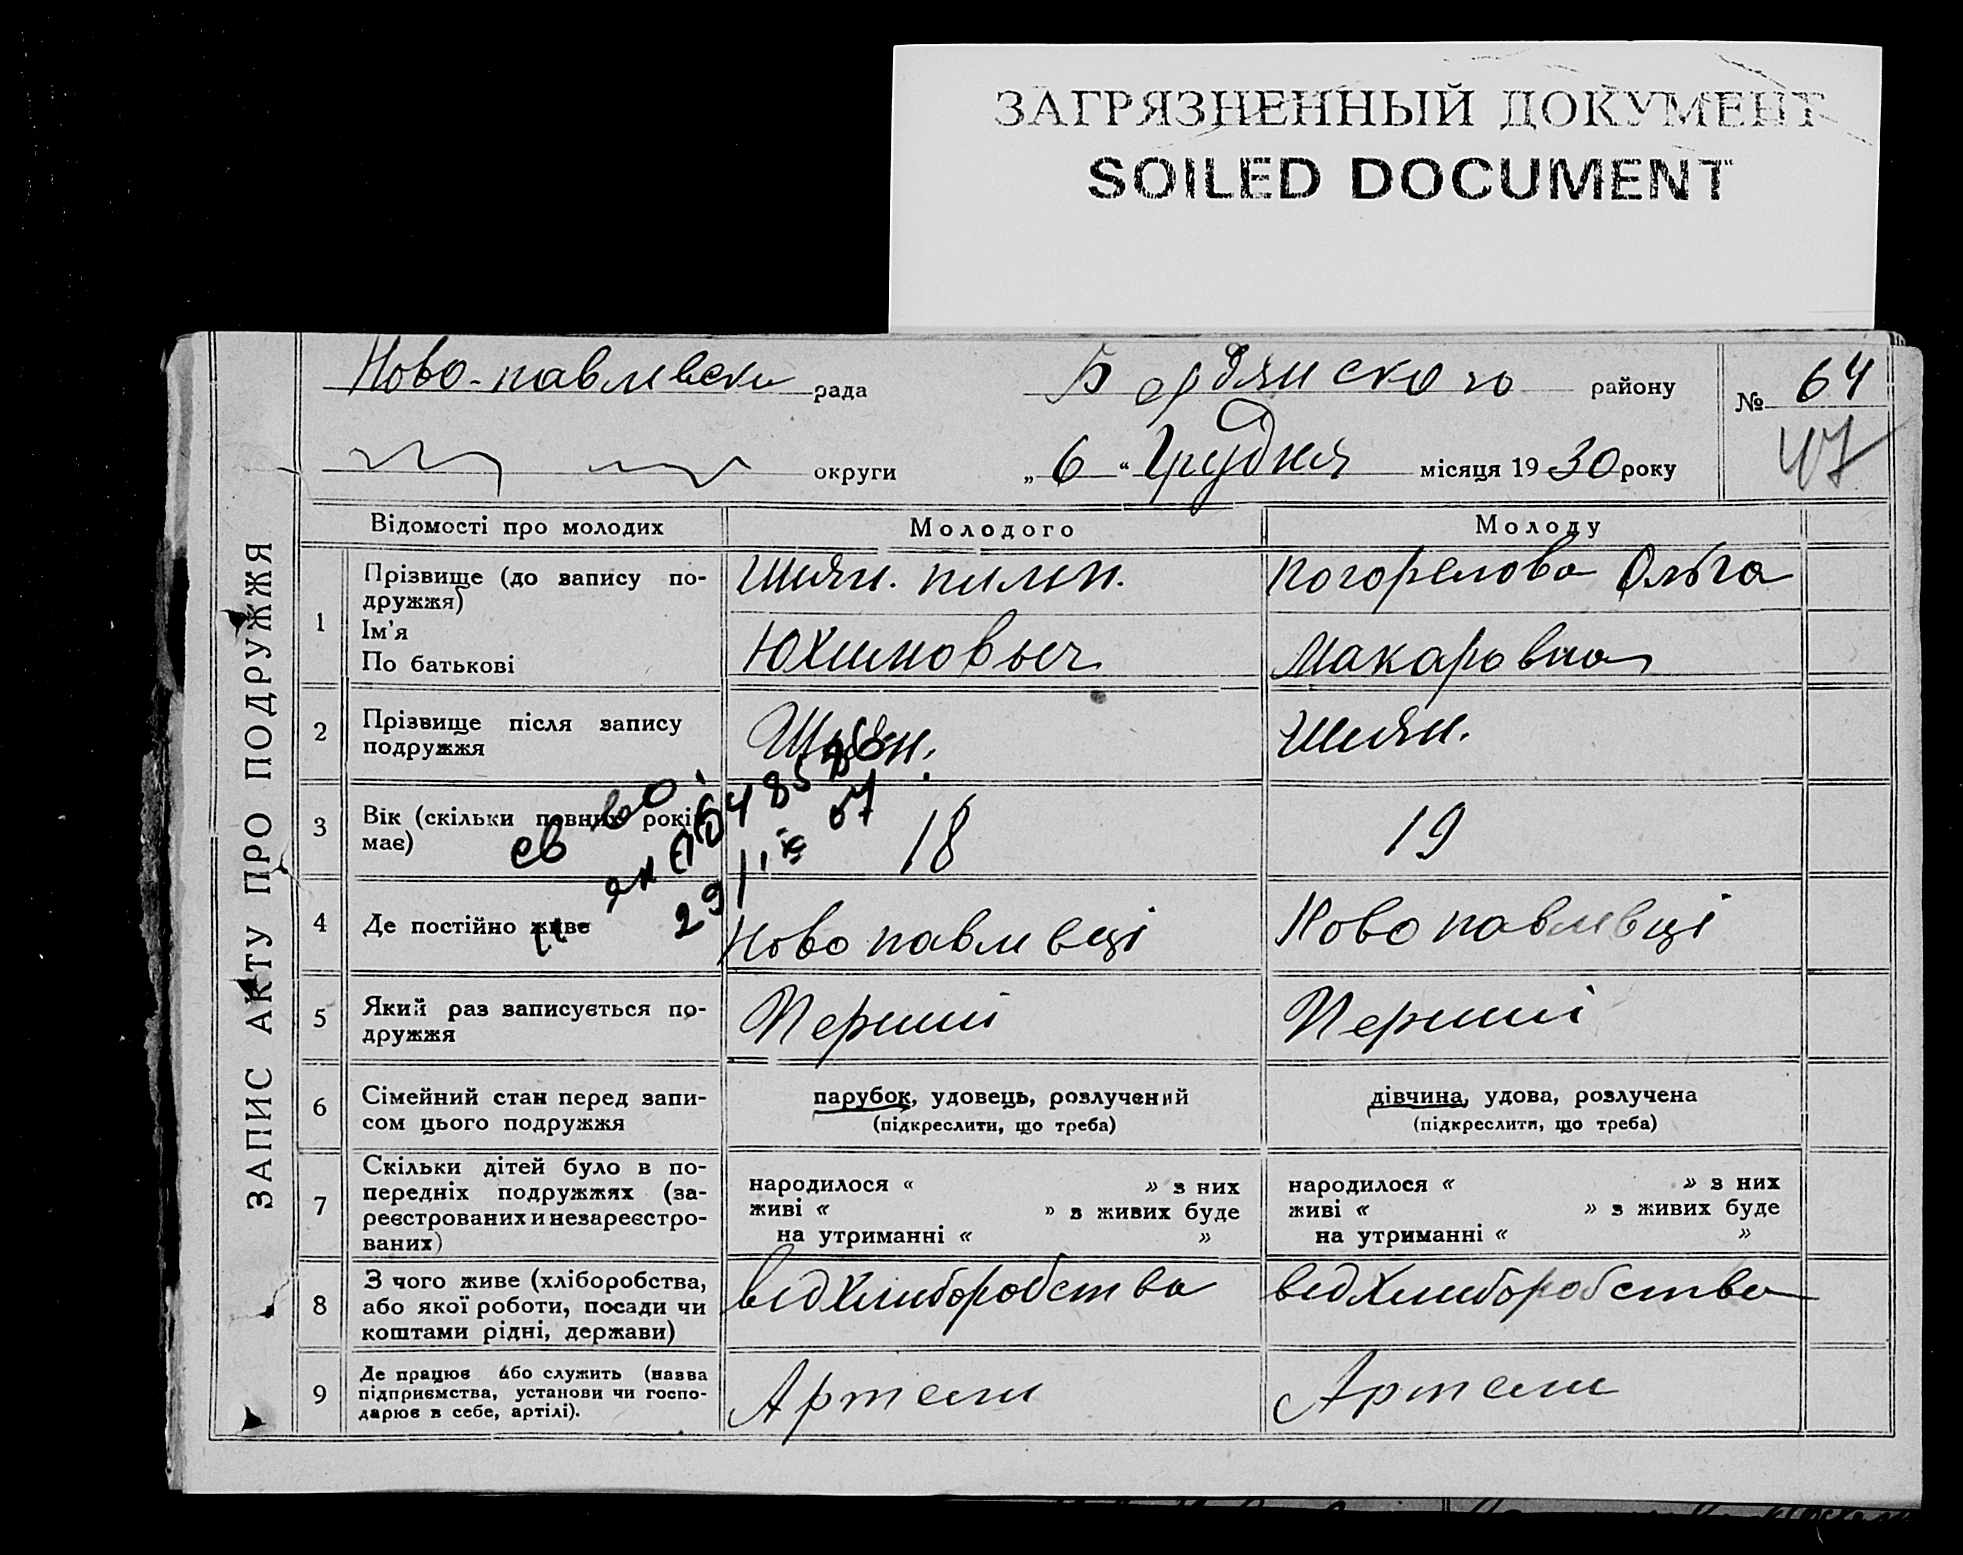 ЗАГРЯЗНЕННЫЙ ДОКУМЕНТ
SOILED DOCUMENT
Ново-павливски рада Бердянского району № 64
47
округи „6“ Грудня місяця 1930 року
ЗАПИС АКТУ ПРО ПОДРУЖЖЯ
Відомості про молодих Молодого Молоду
1 Прізвище (до запису по-
дружжя)
Ім’я
По батькові
Шиян. пилип.
Юхимовыч
погорелова Ольга
Макаровна
2 Прізвище після запису
подружжя
Шиян.
Шиян.
3 Вік (скільки повних років
має)
18
19
св во
29
67
4 Де постійно живе
Ново павливці
Ново павливці
5 Який раз записується по-
дружжя
Перший
Перший
6 Сімейний стан перед запи-
сом цього подружжя
парубок, удовець, розлучений
(підкреслити, що треба)
дівчина, удова, розлучена
(підкреслити, що треба)
7 Скільки дітей було в по-
передніх подружжях (за-
реєстрованих и незареєстро-
ваних)
народилося « » з них
живі « » з живих буде
на утриманні « »
народилося « » з них
живі « » з живих буде
на утриманні « »
8 З чого живе (хліборобства,
або якої роботи, посади чи
коштами рідні, держави)
видхлиборобства
видхлиборобства
9 Де працює або служить (назва
підприємства, установи чи госпо-
дарює в себе, артілі).
Артели
Артели